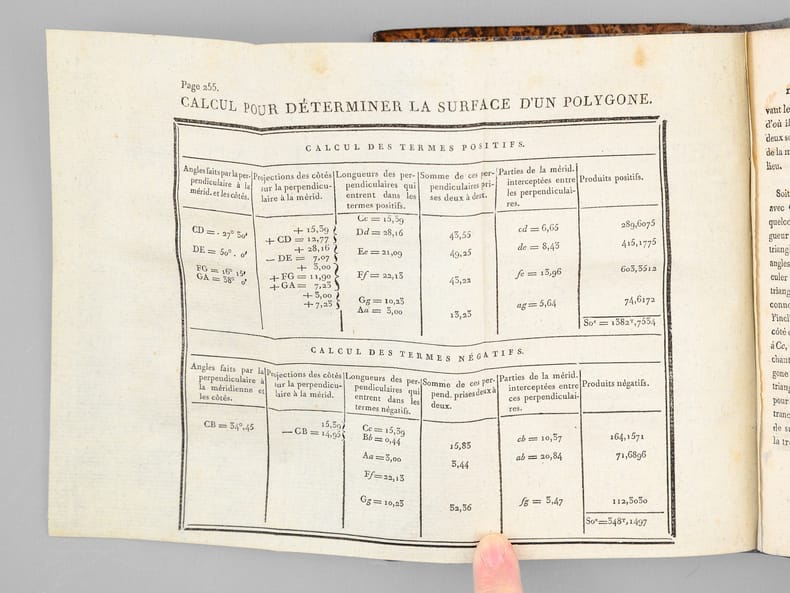 Page 255.
CALCUL POUR DÉTERMINER LA SURFACE D'UN POLYGONE.
CALCUL DES TERMES POSITIFS.
Angles faits par la per-
pendiculaire à la
mérid. et les côtés.
Projections des côtés
sur la perpendicu-
laire à la mérid.
Longueurs des per-
pendiculaires qui
entrent dans les
termes positifs.
Somme de ces per-
pendiculaires pri-
ses deux à deux.
Parties de la mérid.
interceptées entre
les perpendiculai-
res.
Produits positifs.
CD = . 27° 30′
DE = 50° . 0′
FG = 16° 15′
GA = 38° 0′
+ 15,39
+ CD = 12,77
+ 28,16
— DE = 7,07
+ 3,00
+ FG = 11,90
+ GA = 7,23
+ 3,00
+ 7,23
Cc = 15,39
Dd = 28,16
Ee = 21,09
Ff = 22,13
Gg = 10,23
Aa = 3,00
43,55
49,25
43,22
13,23
cd = 6,65
de = 8,43
fe = 13,96
ag = 5,64
289,6075
415,1775
603,3512
74,6172
So.e = 1382T,7534
CALCUL DES TERMES NÉGATIFS.
Angles faits par la
perpendiculaire à
la méridienne et
les côtés.
Projections des côtés
sur la perpendicu-
laire à la mérid.
Longueurs des per-
pendiculaires qui
entrent dans les
termes négatifs.
Somme de ces per-
pend. prises deux à
deux.
Parties de la mérid.
interceptées entre
ces perpendiculai-
res.
Produits négatifs.
CB = 34°,45
15,39
— CB = 14,95
Cc = 15,39
Bb = 0,44
Aa = 3,00
Ff = 22,13
Gg = 10,23
15,83
3,44
32,36
cb = 10,37
ab = 20,84
fg = 3,47
164,1571
71,6896
112,3030
So.e = 348T,1497
vant le
d'où il
deux se
de la m
lieu.
Soit
avec
quelco
gueur
triang
angles
culer
triang
conno
l'incl
côté
à Cc,
chant
gone
triang
pour
tranc
de su
la tro